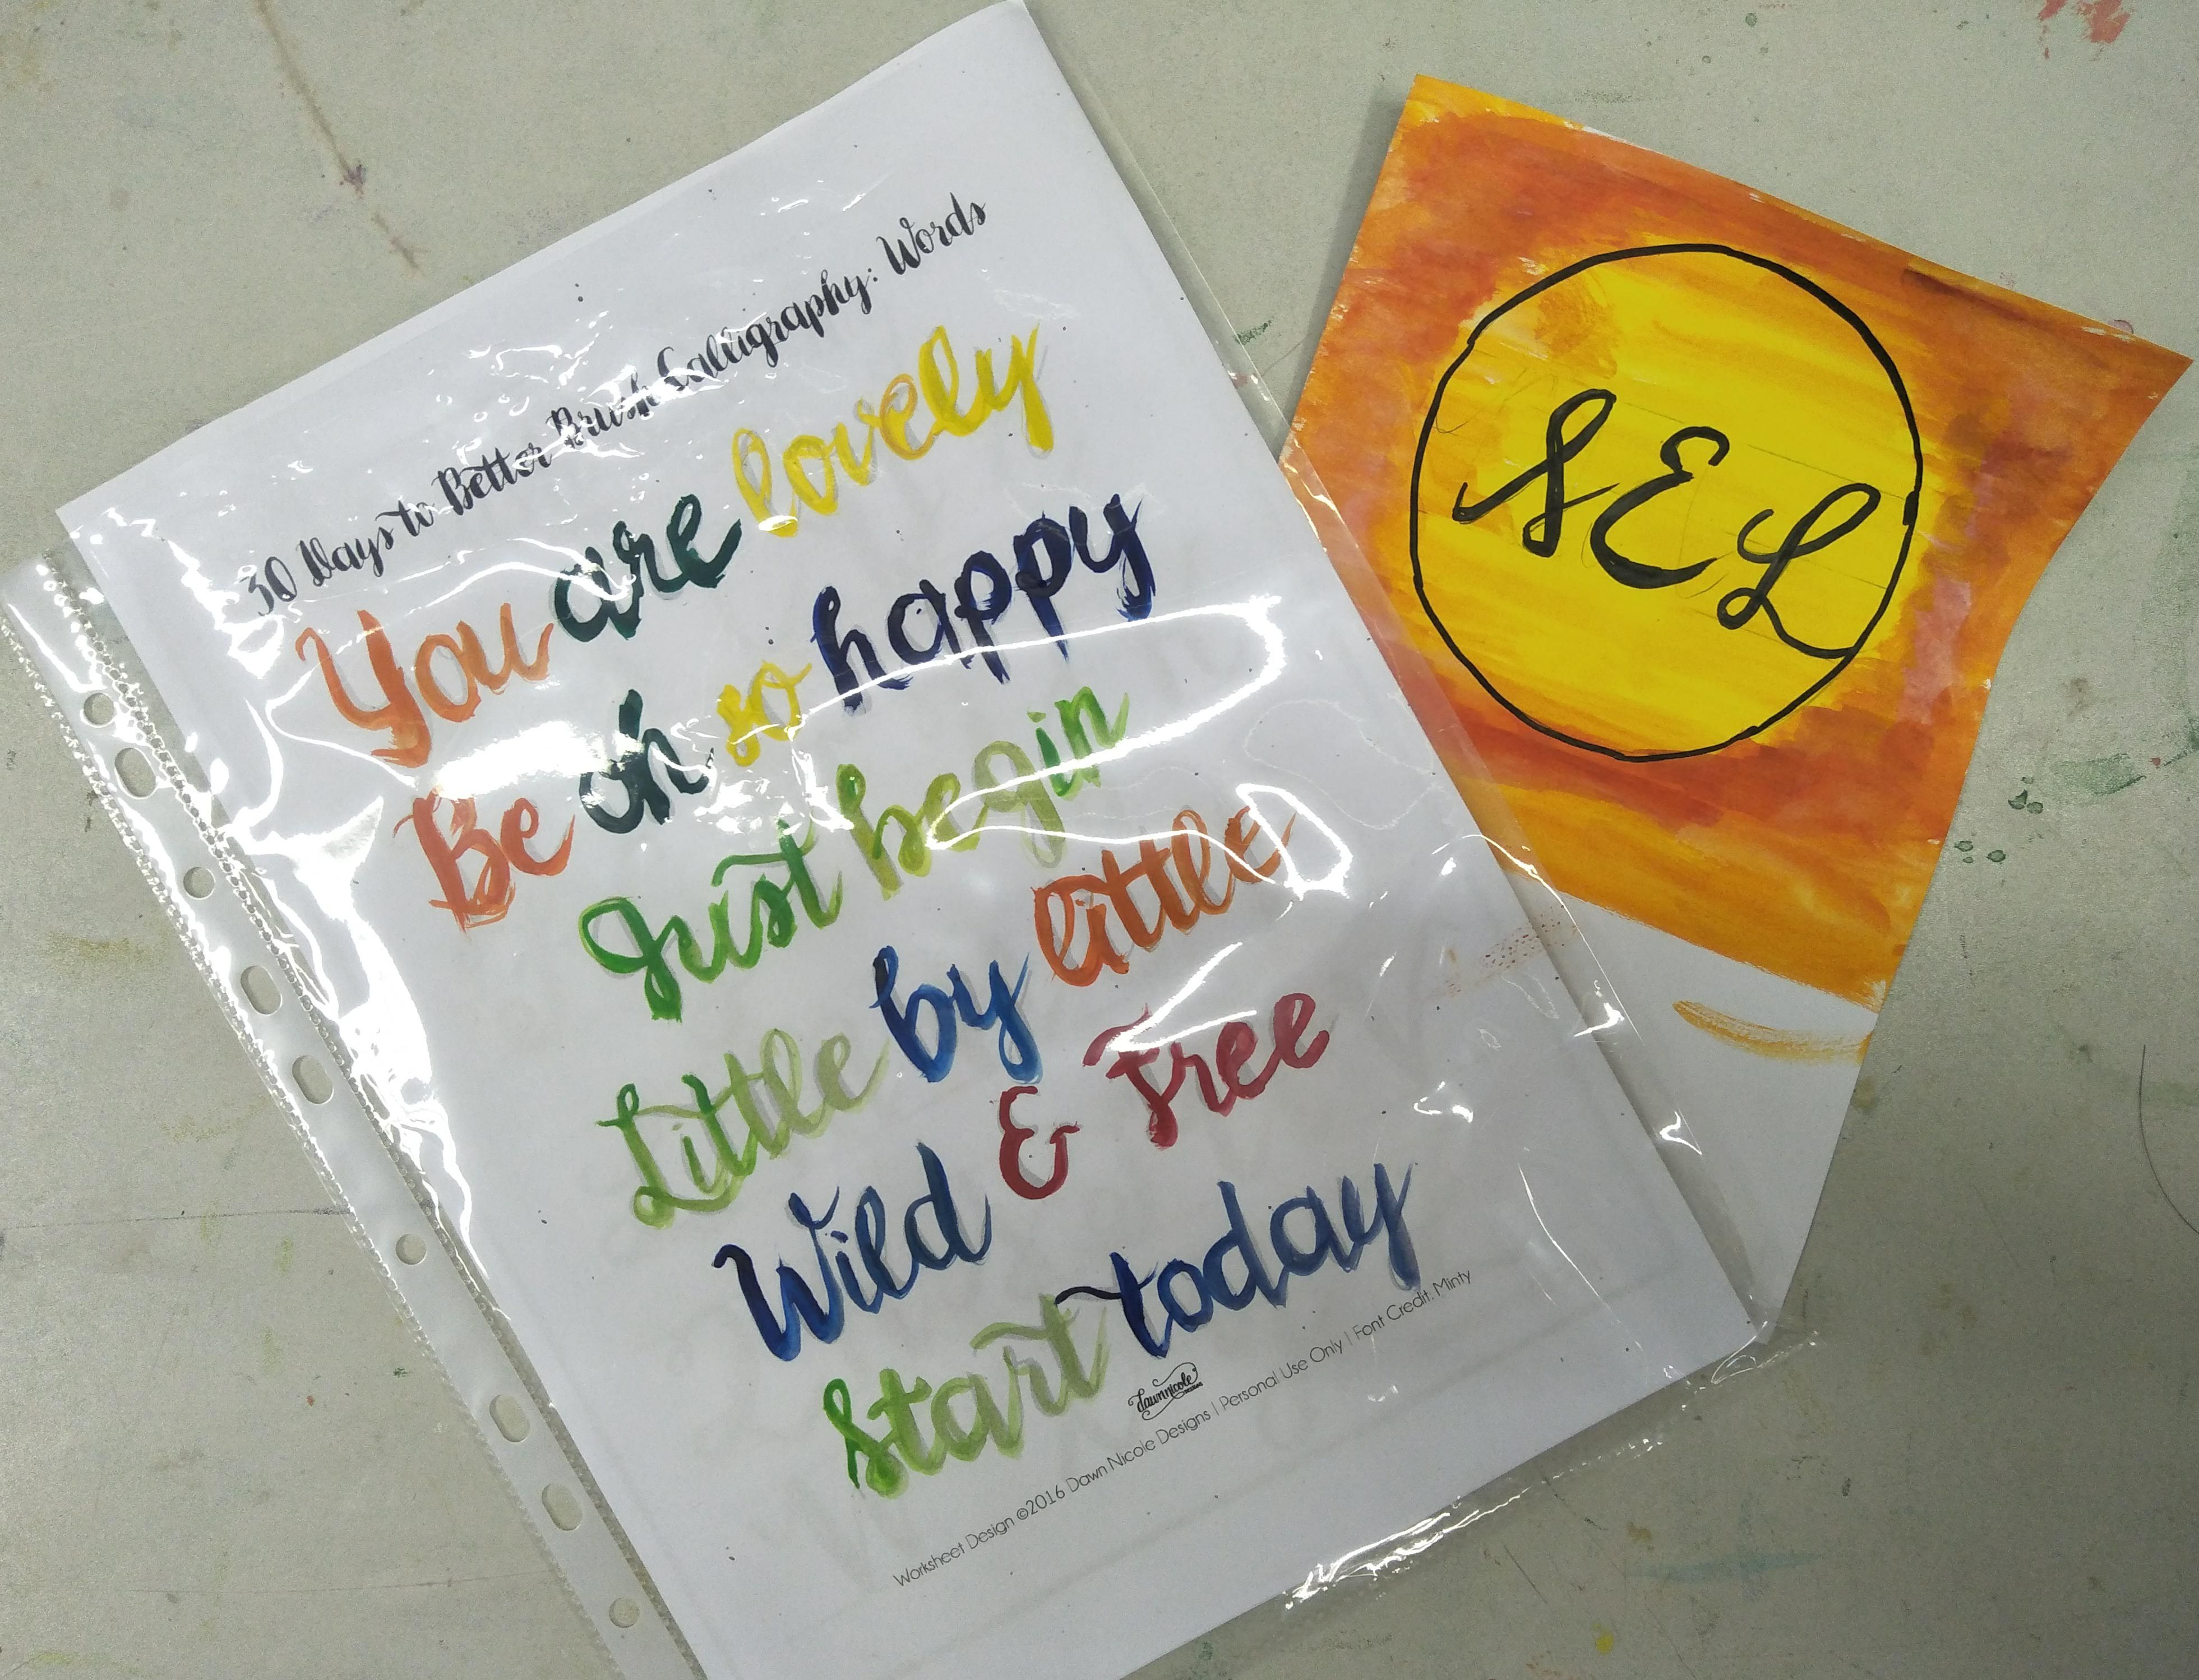 30 Days to Better Brush Calligraphy: Words
You are lovely
Be oh so happy
Just begin
Little by little
Wild & Free
Start today
dawnnicole
DESIGNS
Worksheet Design ©2016 Dawn Nicole Designs | Personal Use Only | Font Credit: Minty
SEL